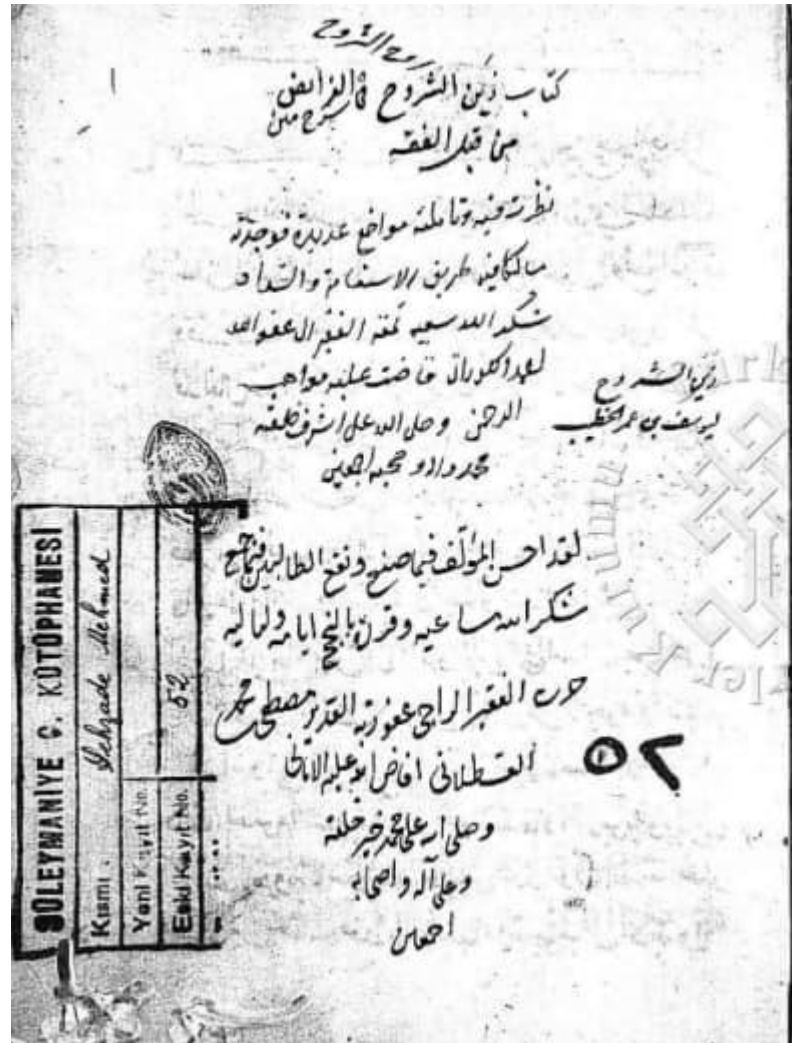 روح الشروح
كتاب زين الشروح في الفرائض
شرح متن
من قبل الفقه
نظرت فيه وتاملته مواضع عديدة فوجدته
سالكا فيه طريق الاستقامة والسداد
شكر الله سعيه نمقه الفقير الى عفو الله
احمد الكوراني فاضت عليه مواهب
الرحمن وصلى الله على اشرف خلقه
محمد واله وصحبه اجمعين
زين الشروح
ليوسف بن عمر الخطيب
لقد احسن المؤلف فيما صنع ونفع الطالبين فيما جمع
شكر الله مساعيه وقرن بالنجح ايامه ولياليه
حرره الفقير الراجي عفو ربه القدير مصطفى محمد
القسطلاني افاض الله عليه الاماني
وصلى الله على محمد خير خلقه
وعلى آله واصحابه
اجمعين
٥٢
SÜLEYMANİYE G. KÜTÜPHANESİ
Kısmı. Şehzade Mehmed
Yeni Kayıt No.
Eski Kayıt No. 52